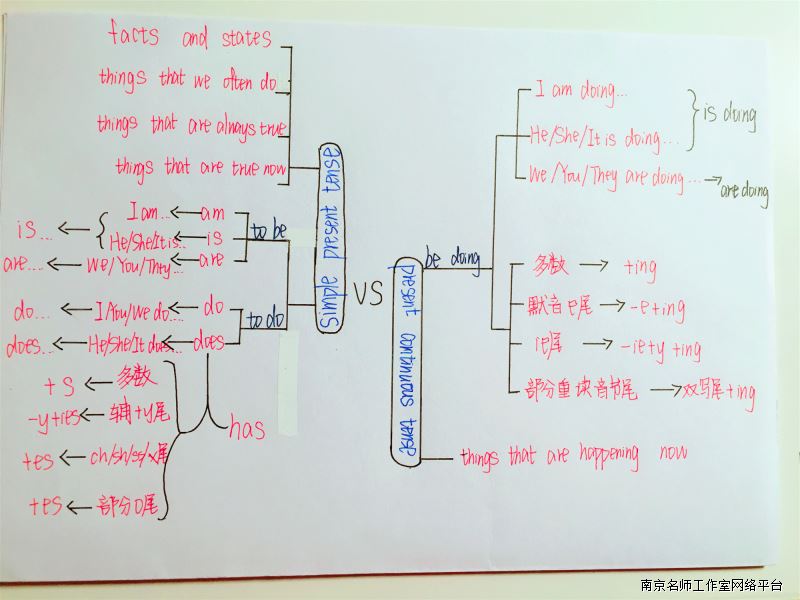 facts and states
things that we often do
things that are always true
things that are true now
simple present tense
to be
am
I am...
is
He/She/It is...
is...
are
We/You/They...
are...
to do
do
I/You/We do...
do...
does
He/She/It does...
does...
has
多数
+s
辅+y尾
-y+ies
ch/sh/ss/x尾
+es
部分o尾
+es
VS
present continuous tense
be doing
I am doing...
He/She/It is doing...
is doing
We/You/They are doing...
are doing
多数 → +ing
默音e尾 → -e+ing
ie尾 → -ie+y +ing
部分重读音节尾 → 双写尾+ing
things that are happening now
南京名师工作室网络平台